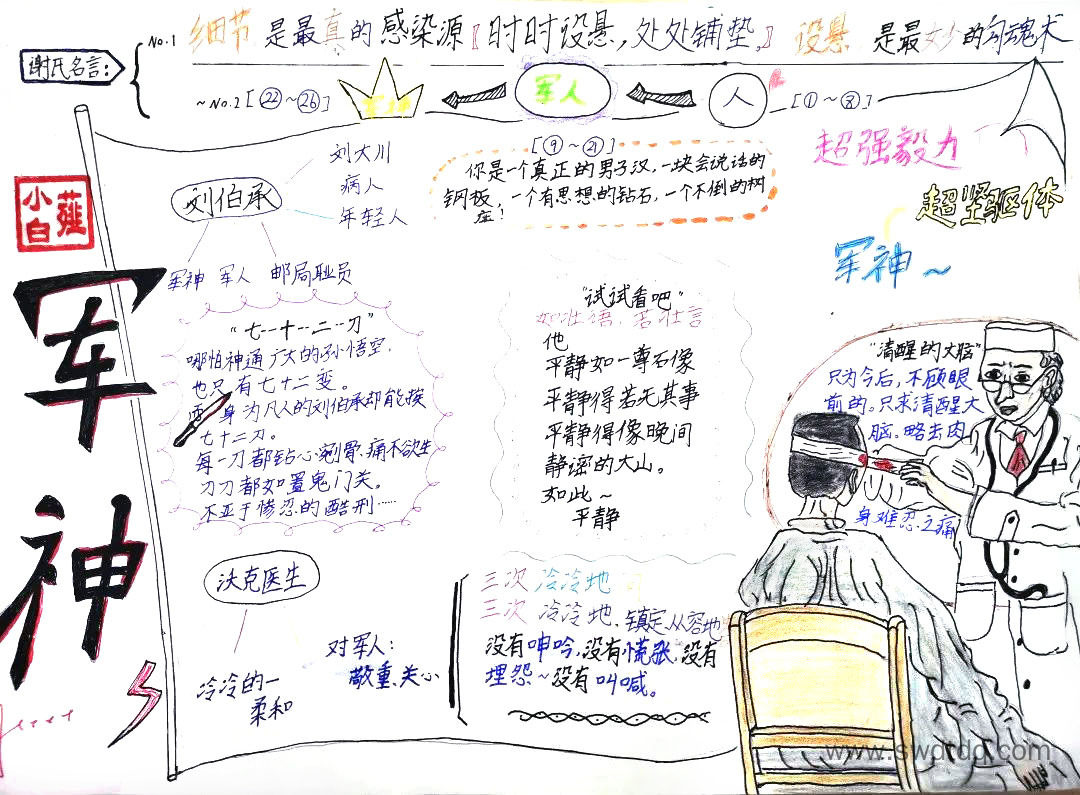 No.1 细节 是最真的感染源〖时时设悬,处处铺垫〗 设悬 是最妙的勾魂术
谢氏名言:
~No.2 [㉒~㉖] 军神 军人 人 [①~⑧]
小白薤
军神
刘伯承
刘大川
病人
年轻人
军神 军人 邮局职员
[⑨~㉑]
你是一个真正的男子汉,一块会说话的
钢板,一个有思想的钻石,一个不倒的树
庄!
超强毅力
超坚驱体
军神~
"七··十··二··刀"
哪怕神通广大的孙悟空,
也只有七十二变。
而身为凡人的刘伯承却能挨
七十二刀。
每一刀都钻心剜骨,痛不欲生
刀刀都如置鬼门关。
不亚于惨忍的酷刑……
"试试看吧"
如壮语,若壮言
他
平静如一尊石像
平静得若无其事
平静得像晚间
静谧的大山。
如此~
平静
"清醒的大脑"
只为今后,不顾眼
前的。只求清醒大
脑。略去肉
身难忍之痛
沃克医生
冷冷的一
柔和
对军人:
敬重、关心
三次 冷冷地
三次 冷冷地、镇定、从容地
没有呻吟,没有慌张,没有
埋怨~没有叫喊。
www.swqrdq.com